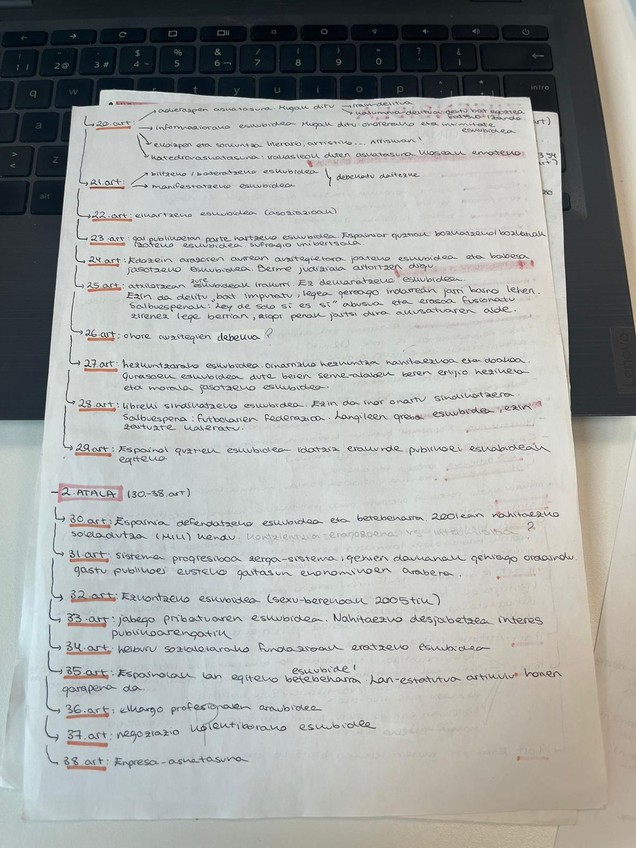 20.art: adierazpen askatasuna. Mugak ditu → irain-delitua
→ kalumnia-delitua: delitu bat egotzea faltsua izanda
→ informaziorako eskubidea. Mugak ditu: ohorerako eta intimitate eskubidea
→ ekoizpen eta sorkuntza literario, artistiko...
→ katedra-askatasuna: irakasleek duten askatasuna klaseak emateko
21.art → biltzeko / batzeko eskubidea
→ manifestatzeko eskubidea
debekatu daitezke
22.art: elkartzeko eskubidea (asoziazioak)
23.art: gai publikoetan parte hartzeko eskubidea. Espainiar guztiak bozkatzeko/bozkatuak izateko eskubidea sufragio unibertsala
24.art: Edozein arazoren aurrean auzitegietara joateko eskubidea eta babesa jasotzeko eskubidea. Berme judiziala aitortzen digu.
25.art: atxilotzean zure eskubideak irakurri. Ez deklaratzeko eskubidea
Ezin da delitu bat imputatu, legea geroago indarrean jarri baino lehen.
Salbuespenak: "Ley de solo sí es sí" abusua eta erasoa fusionatu
zirenez lege berrian, aigot penak jaitsi dira akusatuaren alde.
26.art: ohore auzitegien debekua?
27.art: hezkuntzarako eskubidea. Oinarrizko hezkuntza nahitaezkoa eta doakoa.
Gurasoek eskubidea dute beien seme-alabek beren erlijio heziketa
eta morala jasotzeko eskubidea.
28.art: libreki sindikatzeko eskubidea. Ezin da inor onartu sindikatzera.
Salbuespena: futbolarien federazioa. Langileen greba eskubidea, ezin
zaituzte kaleratu.
29.art: Espainol guztien eskubidea idatziz erakunde publikoei eskabideak
egiteko
– 2. ATALA (30-38.art)
30.art: Espainia defendatzeko eskubidea eta betebeharra. 2001ean nahitaezko
soldadutza (MILI) kendu. ?
31.art: sistema progresiboa zerga-sistema, gehien daukanak gehiago ordaindu
gastu publikoei eusteko gaitasun ekonomikoen arabera.
32.art: Ezkontzeko eskubidea (sexu-berekoak 2005tik)
33.art: jabego pribatuaren eskubidea. Nahitaezko desjabetzea interes
publikoarengatik
34.art: helburu sozialetarako fundazioak eratzeko eskubidea
35.art: Espainolak lan egiteko betebeharra. eskubide! Lan-estatutua artikulu honen
garapena da.
36.art: elkargo profesionalen araubidea
37.art: negoziazio kolektiborako eskubidea
38.art: Enpresa-askatasuna